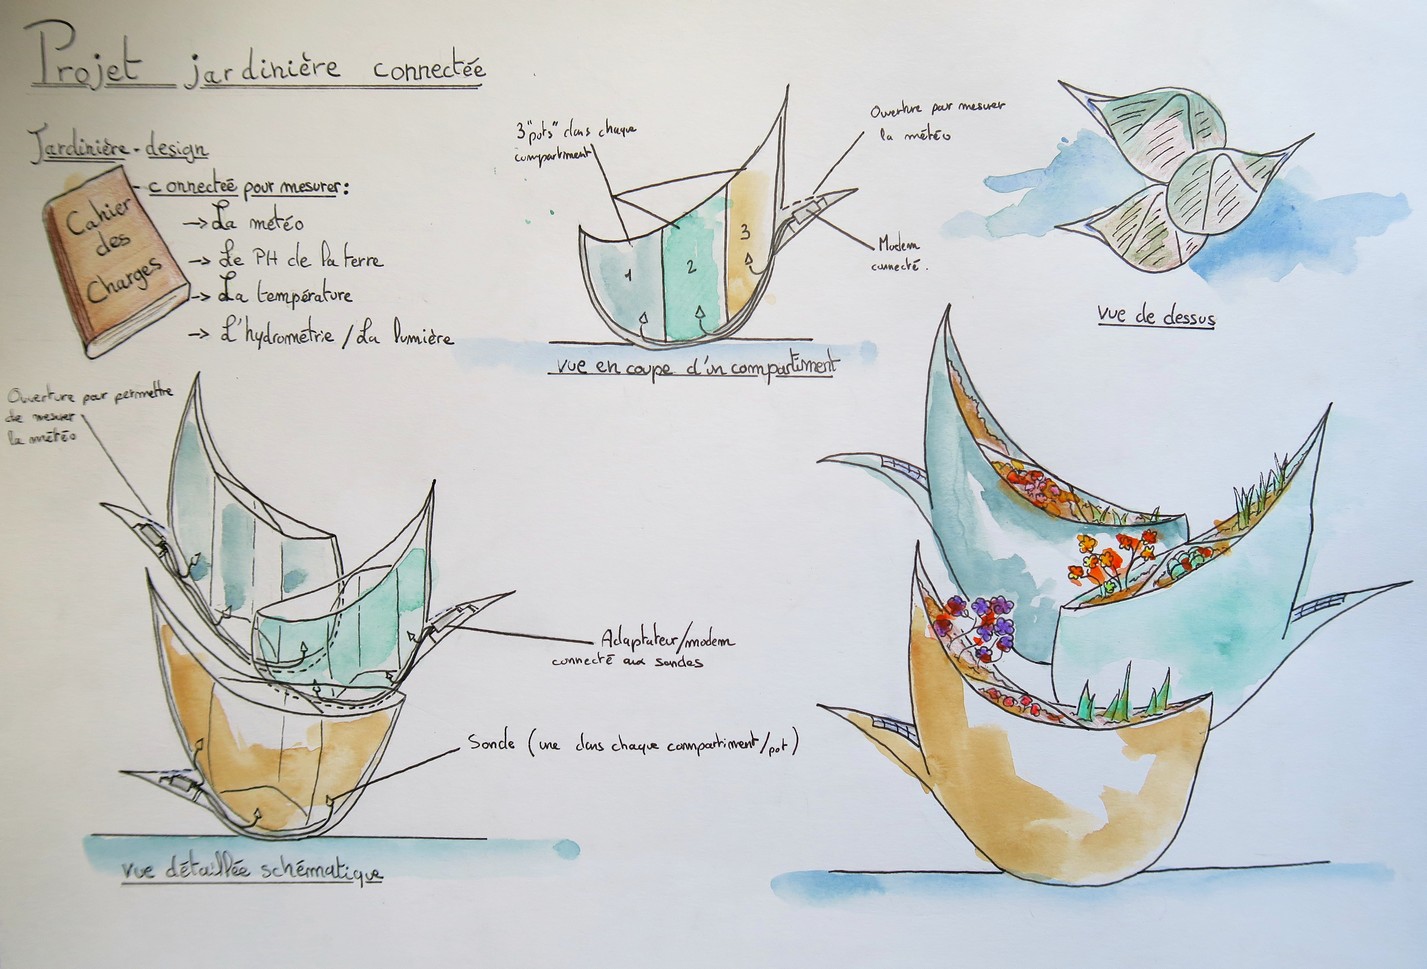 Projet jardinière connectée
Jardinière-design
connectée pour mesurer:
Cahier
des
Charges
→ La météo
→ Le PH de la terre
→ La température
→ L'hydrométrie / La lumière
3 "pots" dans chaque
compartiment
Ouverture pour mesurer
la météo
1
2
3
Modem
connecté.
vue en coupe d'un compartiment
vue de dessus
Ouverture pour permettre
de mesurer
la météo
Adaptateur/modem
connecté aux sondes
Sonde (une dans chaque compartiment/pot)
vue détaillée schématique